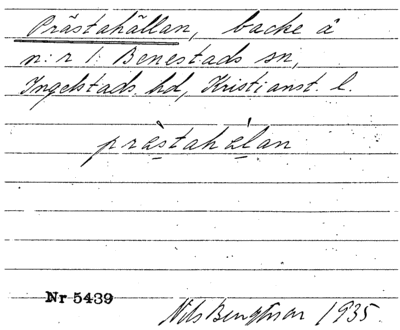 Prästahällan, backe å
n:r 1 Benestads sn,
Ingelstads hd, Kristianst. l.
prästahälan
Nr 5439
Nils Bengtsson 1935